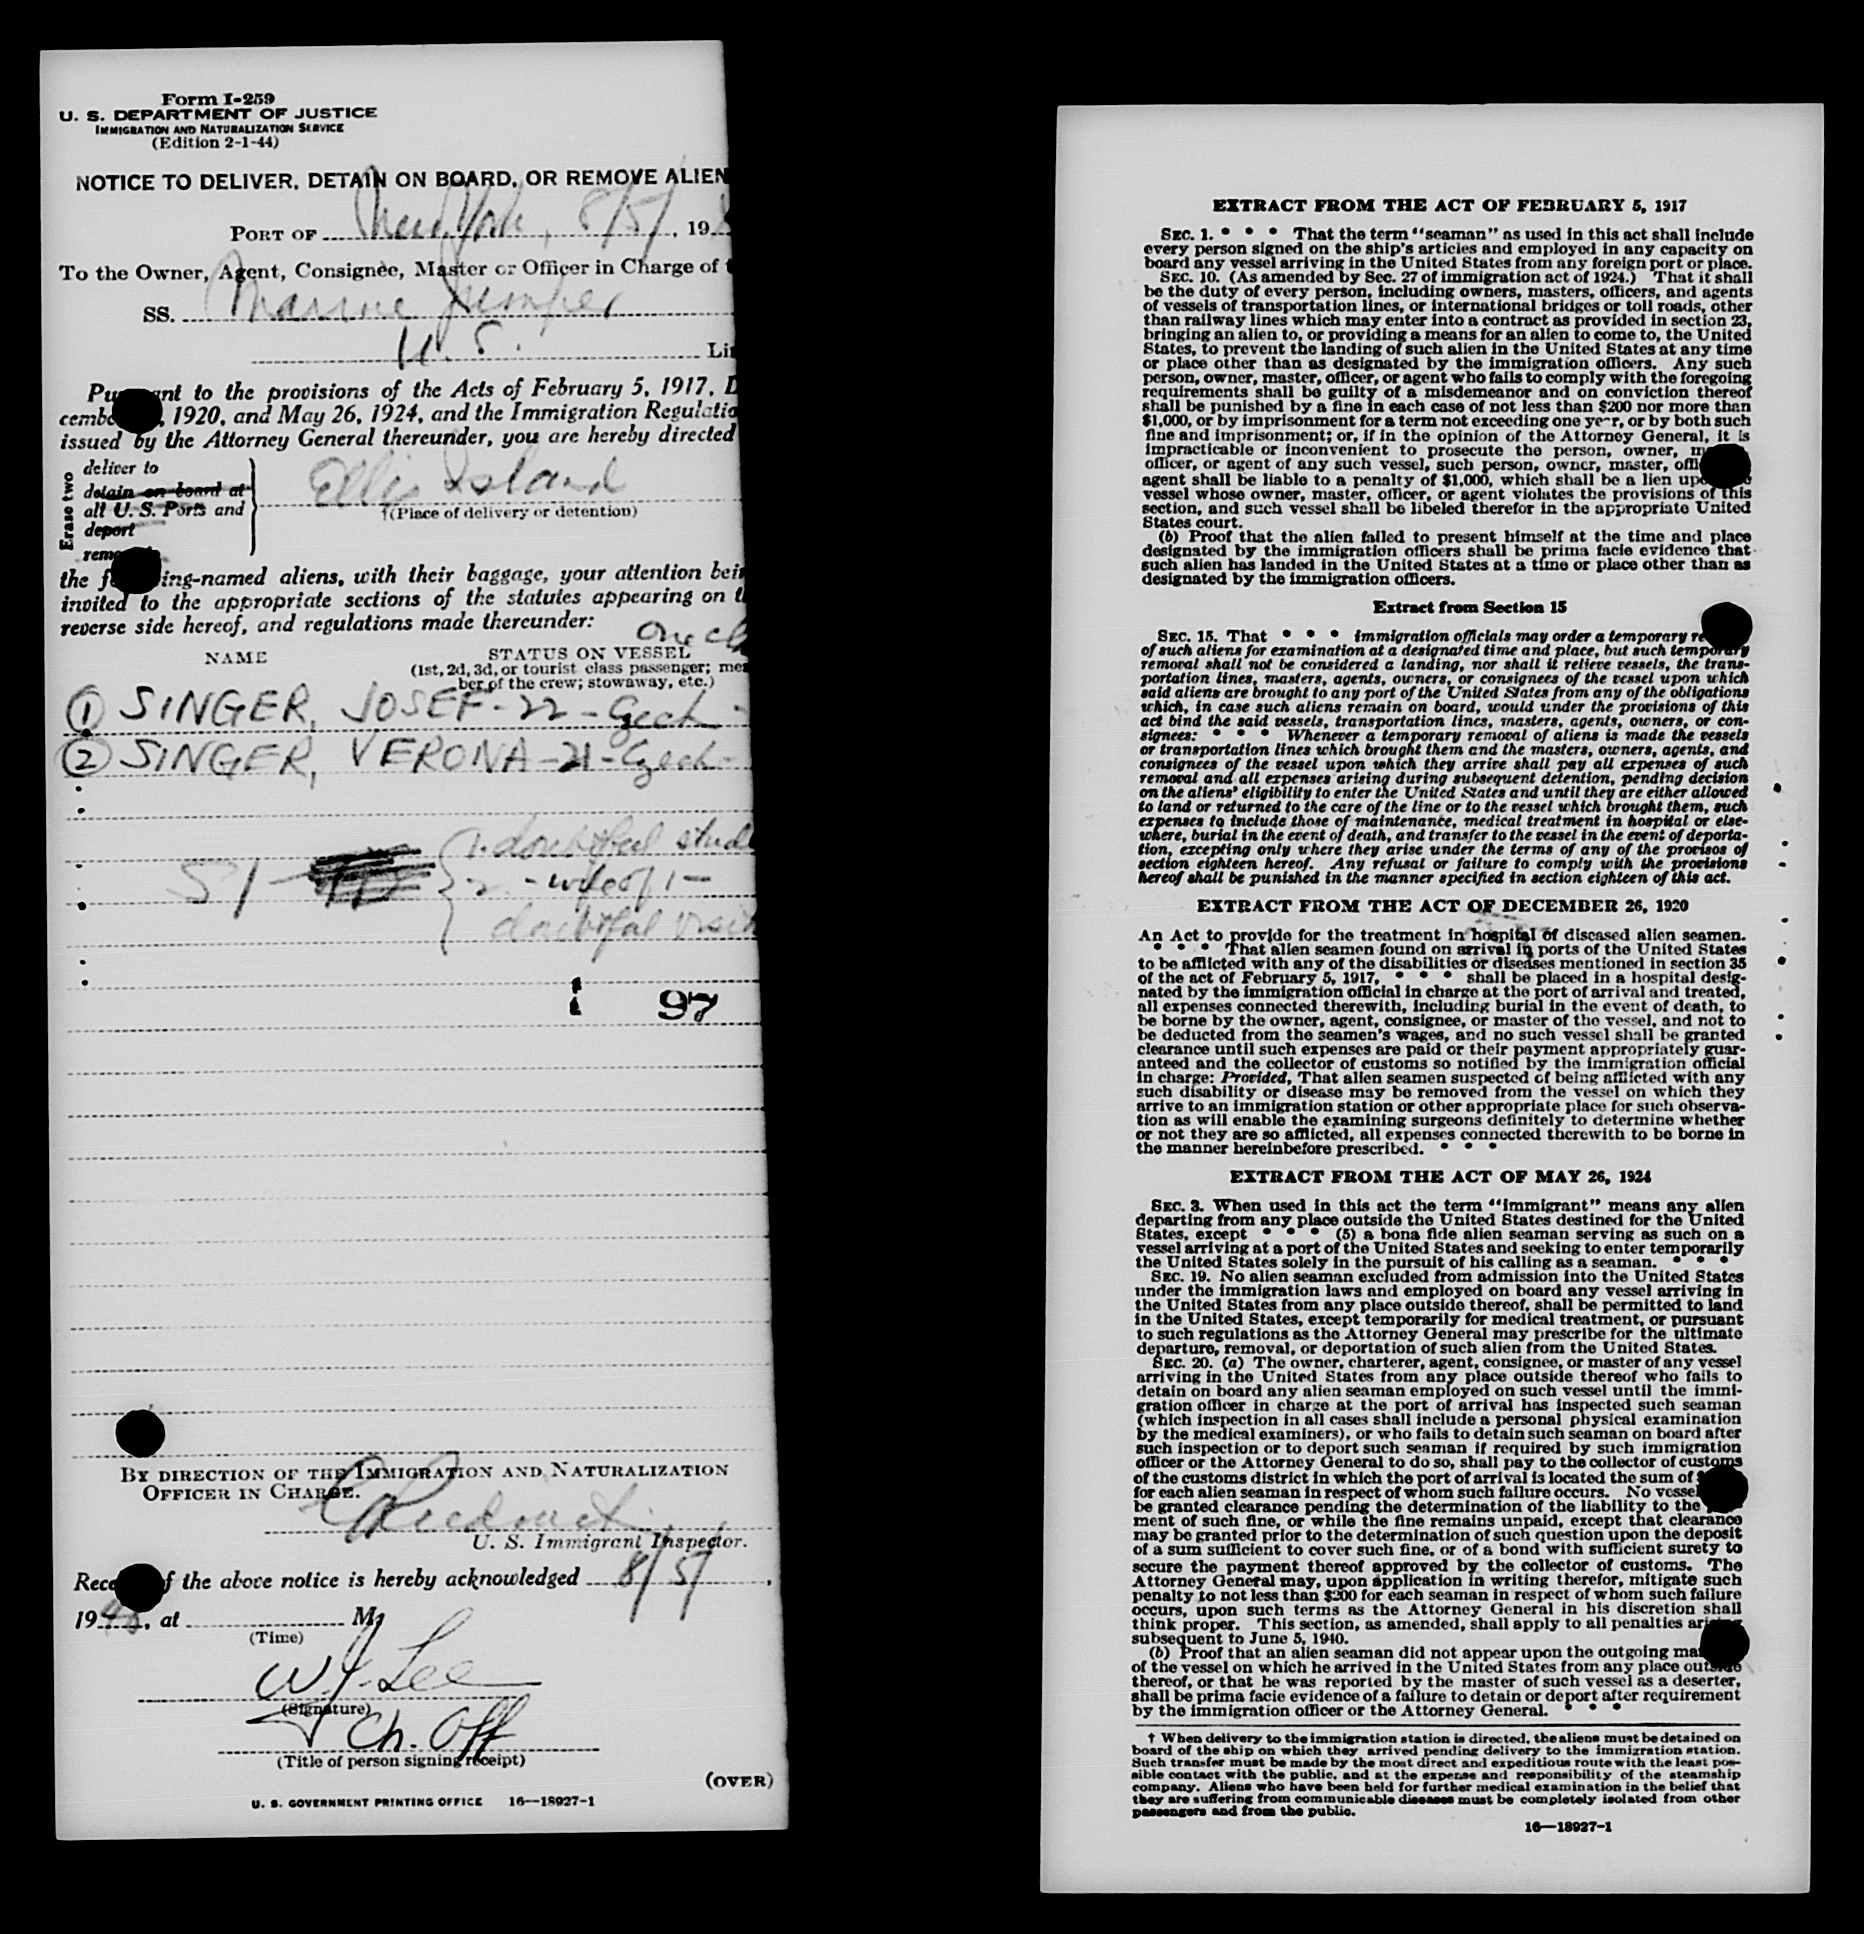 Form I-259
U. S. DEPARTMENT OF JUSTICE
IMMIGRATION AND NATURALIZATION SERVICE
(Edition 2-1-44)
NOTICE TO DELIVER, DETAIN ON BOARD, OR REMOVE ALIEN
PORT OF New York, 8/5/, 19
To the Owner, Agent, Consignee, Master or Officer in Charge of
SS. Marine Jumper
U. S.
Pursuant to the provisions of the Acts of February 5, 1917,
1920, and May 26, 1924, and the Immigration Regulatio
issued by the Attorney General thereunder, you are hereby directed
Erase two
deliver to
detain on board at
all U. S. Ports and
deport
Ellis Island
†(Place of delivery or detention)
the ing-named aliens, with their baggage, your attention bein
invited to the appropriate sections of the statutes appearing on
reverse side hereof, and regulations made thereunder:
One
NAME
STATUS ON VESSEL
(1st, 2d, 3d, or tourist class passenger; mem
ber of the crew; stowaway, etc.)
1 SINGER, JOSEF - 22 - Czech -
2 SINGER, VERONA - 21 - Czech -
1. doubtful stud
51
2 - wife of 1 -
doubtful visit
1 97
BY DIRECTION OF THE IMMIGRATION AND NATURALIZATION
OFFICER IN CHARGE.
U. S. Immigrant Inspector.
Rece f the above notice is hereby acknowledged 8/5/,
1948, at M.
(Time)
W. J. Lee
(Signature)
Ch. Off
(Title of person signing receipt)
(OVER)
U. S. GOVERNMENT PRINTING OFFICE 16—18927-1
EXTRACT FROM THE ACT OF FEBRUARY 5, 1917
SEC. 1. * * * That the term "seaman" as used in this act shall include
every person signed on the ship's articles and employed in any capacity on
board any vessel arriving in the United States from any foreign port or place.
SEC. 10. (As amended by Sec. 27 of immigration act of 1924.) That it shall
be the duty of every person, including owners, masters, officers, and agents
of vessels of transportation lines, or international bridges or toll roads, other
than railway lines which may enter into a contract as provided in section 23,
bringing an alien to, or providing a means for an alien to come to, the United
States, to prevent the landing of such alien in the United States at any time
or place other than as designated by the immigration officers. Any such
person, owner, master, officer, or agent who fails to comply with the foregoing
requirements shall be guilty of a misdemeanor and on conviction thereof
shall be punished by a fine in each case of not less than $200 nor more than
$1,000, or by imprisonment for a term not exceeding one year, or by both such
fine and imprisonment; or, if in the opinion of the Attorney General, it is
impracticable or inconvenient to prosecute the person, owner, m
officer, or agent of any such vessel, such person, owner, master, offi
agent shall be liable to a penalty of $1,000, which shall be a lien upo
vessel whose owner, master, officer, or agent violates the provisions of this
section, and such vessel shall be libeled therefor in the appropriate United
States court.
(b) Proof that the alien failed to present himself at the time and place
designated by the immigration officers shall be prima facie evidence that
such alien has landed in the United States at a time or place other than as
designated by the immigration officers.
Extract from Section 15
SEC. 15. That * * * immigration officials may order a temporary re
of such aliens for examination at a designated time and place, but such temporary
removal shall not be considered a landing, nor shall it relieve vessels, the trans-
portation lines, masters, agents, owners, or consignees of the vessel upon which
said aliens are brought to any port of the United States from any of the obligations
which, in case such aliens remain on board, would under the provisions of this
act bind the said vessels, transportation lines, masters, agents, owners, or con-
signees: * * * Whenever a temporary removal of aliens is made the vessels
or transportation lines which brought them and the masters, owners, agents, and
consignees of the vessel upon which they arrive shall pay all expenses of such
removal and all expenses arising during subsequent detention, pending decision
on the aliens' eligibility to enter the United States and until they are either allowed
to land or returned to the care of the line or to the vessel which brought them, such
expenses to include those of maintenance, medical treatment in hospital or else-
where, burial in the event of death, and transfer to the vessel in the event of deporta-
tion, excepting only where they arise under the terms of any of the provisos of
section eighteen hereof. Any refusal or failure to comply with the provisions
hereof shall be punished in the manner specified in section eighteen of this act.
EXTRACT FROM THE ACT OF DECEMBER 26, 1920
An Act to provide for the treatment in hospital of diseased alien seamen.
* * * That alien seamen found on arrival in ports of the United States
to be afflicted with any of the disabilities or diseases mentioned in section 35
of the act of February 5, 1917, * * * shall be placed in a hospital desig-
nated by the immigration official in charge at the port of arrival and treated,
all expenses connected therewith, including burial in the event of death, to
be borne by the owner, agent, consignee, or master of the vessel, and not to
be deducted from the seamen's wages, and no such vessel shall be granted
clearance until such expenses are paid or their payment appropriately guar-
anteed and the collector of customs so notified by the immigration official
in charge: Provided, That alien seamen suspected of being afflicted with any
such disability or disease may be removed from the vessel on which they
arrive to an immigration station or other appropriate place for such observa-
tion as will enable the examining surgeons definitely to determine whether
or not they are so afflicted, all expenses connected therewith to be borne in
the manner hereinbefore prescribed. * * *
EXTRACT FROM THE ACT OF MAY 26, 1924
SEC. 3. When used in this act the term "immigrant" means any alien
departing from any place outside the United States destined for the United
States, except * * * (5) a bona fide alien seaman serving as such on a
vessel arriving at a port of the United States and seeking to enter temporarily
the United States solely in the pursuit of his calling as a seaman. * * *
SEC. 19. No alien seaman excluded from admission into the United States
under the immigration laws and employed on board any vessel arriving in
the United States from any place outside thereof, shall be permitted to land
in the United States, except temporarily for medical treatment, or pursuant
to such regulations as the Attorney General may prescribe for the ultimate
departure, removal, or deportation of such alien from the United States.
SEC. 20. (a) The owner, charterer, agent, consignee, or master of any vessel
arriving in the United States from any place outside thereof who fails to
detain on board any alien seaman employed on such vessel until the immi-
gration officer in charge at the port of arrival has inspected such seaman
(which inspection in all cases shall include a personal physical examination
by the medical examiners), or who fails to detain such seaman on board after
such inspection or to deport such seaman if required by such immigration
officer or the Attorney General to do so, shall pay to the collector of customs
of the customs district in which the port of arrival is located the sum of
for each alien seaman in respect of whom such failure occurs. No vessel
be granted clearance pending the determination of the liability to the
ment of such fine, or while the fine remains unpaid, except that clearance
may be granted prior to the determination of such question upon the deposit
of a sum sufficient to cover such fine, or of a bond with sufficient surety to
secure the payment thereof approved by the collector of customs. The
Attorney General may, upon application in writing therefor, mitigate such
penalty to not less than $200 for each seaman in respect of whom such failure
occurs, upon such terms as the Attorney General in his discretion shall
think proper. This section, as amended, shall apply to all penalties arising
subsequent to June 5, 1940.
(b) Proof that an alien seaman did not appear upon the outgoing ma
of the vessel on which he arrived in the United States from any place outside
thereof, or that he was reported by the master of such vessel as a deserter,
shall be prima facie evidence of a failure to detain or deport after requirement
by the immigration officer or the Attorney General. * * *
† When delivery to the immigration station is directed, the aliens must be detained on
board of the ship on which they arrived pending delivery to the immigration station.
Such transfer must be made by the most direct and expeditious route with the least pos-
sible contact with the public, and at the expense and responsibility of the steamship
company. Aliens who have been held for further medical examination in the belief that
they are suffering from communicable diseases must be completely isolated from other
passengers and from the public.
16—18927-1